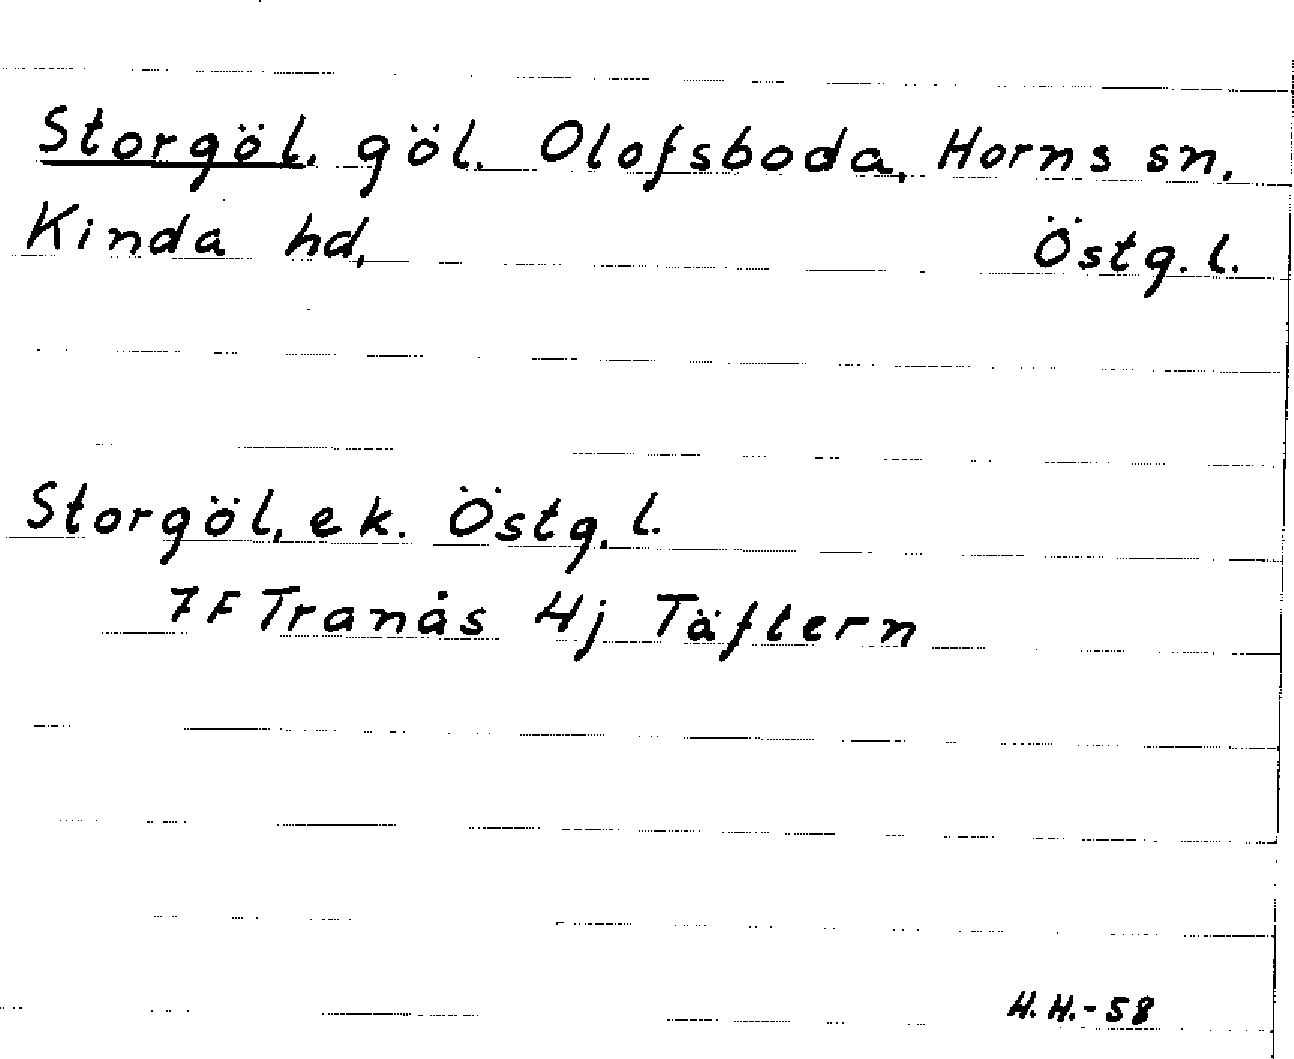 Storgöl, göl. Olofsboda, Horns sn,
Kinda hd, Östg. l.
Storgöl, ek. Östg. l.
7F Tranås 4j Täftern
H. H. - 58